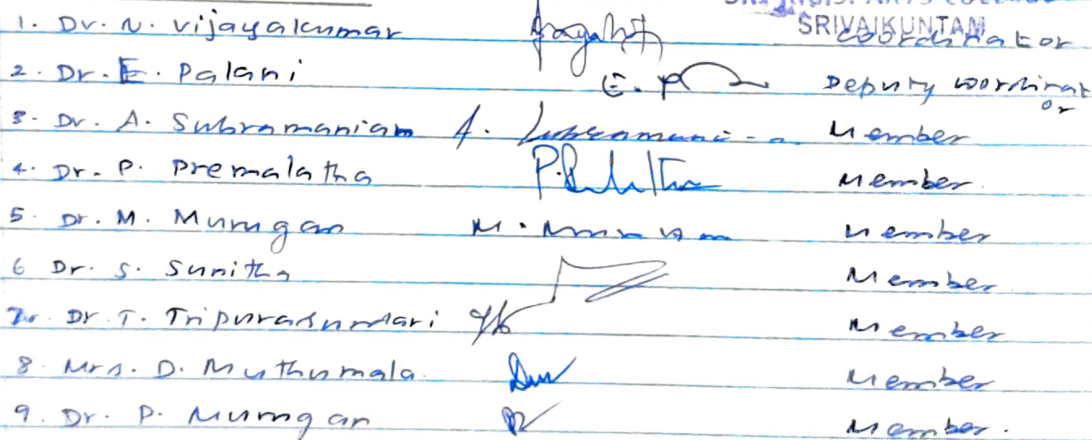 SRIVAIKUNTAM
1. Dr. N. Vijayakumar Coordinator
2. Dr. E. Palani E. P Deputy Coordinator
3. Dr. A. Subramaniam A. Subramani Member
4. Dr. P. Premalatha Member.
5. Dr. M. Murugan M. Member
6 Dr. S. Sunitha Member
7. Dr. T. Tripurasundari Member
8. Mrs. D. Muthumala. Member
9. Dr. P. Murugan Member.